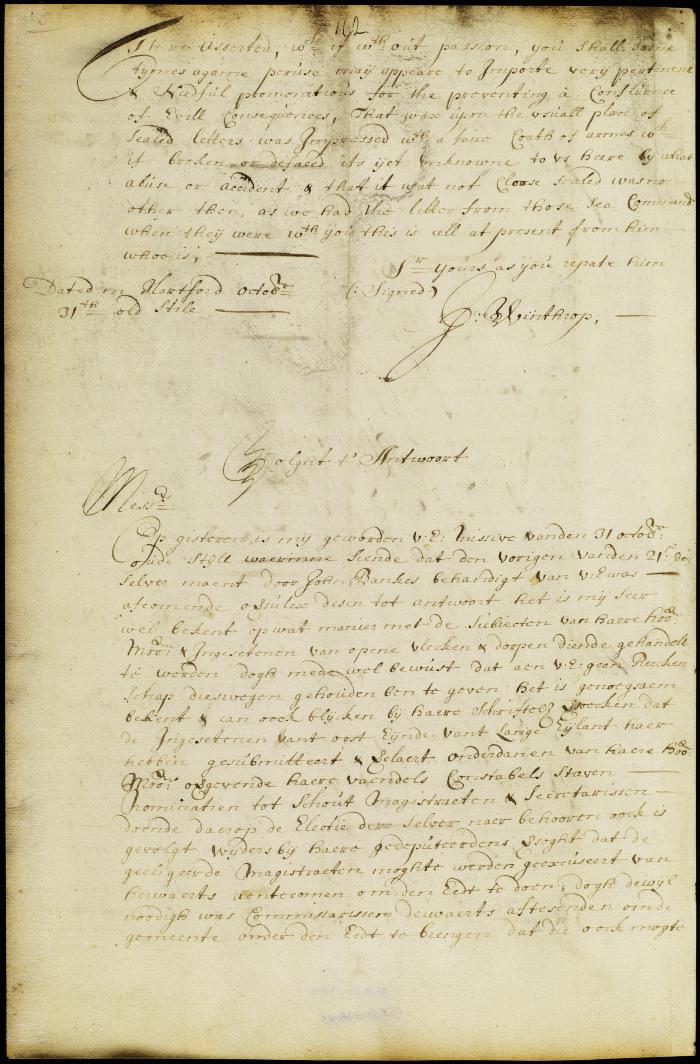 162
I here Asserted, wch if wth out passion, you shall some
tymes againe peruse may appeare to Importe very pertinent
& Nedful promonitions for the preventing a Confluence
of Evill Consequences, That wax upon the usuall place of
sealed letters was Impressed wth a faire Coath of armes wch
if broken or defaced its yet unknowne to vs heere by what
abuse or accident & that it wat not Cloose sealed was no
other then, as we had the letter from those Sea Command
when they were wth you this is all at present from him
whoe is;
Sr yours as you repate him
Dated in Hartford octobr (: Signed)
31th old Stile
J: Winthrop;
Volght t' Antwoort
Messrs
Op gisteren is my geworden v: E: Missive vanden 31 octobr:
Oude Stijll waerinne siende dat den vorigen vanden 21en de
selver maent door John Bankes behandigt van v: E was
afcomende ossulex desen tot antwoort het is mij seer
wel bekent op wat manier met de subiecten van haere hoo:
Moo: & Ingesetenen van opene vlecken & dorpen diende gehandelt
te werden dogh mede wel bewust dat aen v: E: geen Reecken
schap dieswegen gehouden ben te geven het is genoeghsaem
bekent & can oock blijcken bij haere Schriften & boecken dat
de Ingesetenen vant oost Eijnde vant Lange Eijlant haer
hebben gesubmitteert & verclaert onderdanen van haere hoo:
Moo: opgevende haere vaendels Constabels Staven
Nominatien tot Schout Magistraeten & Secretarissen
doende daerop de Electie der selver naer behooren oock is
gevolgt wijders bij haere gedeputeerdens versoght dat de
geeligeerde Magistraeten moghte werden geexcuseert van
herwaerts aentecomen om den Eedt te doen, dogh dewijl
noodigh was Commissarissen derwaerts aftesenden om de
gemeente onder den Eedt te brengen dat die oock mogte